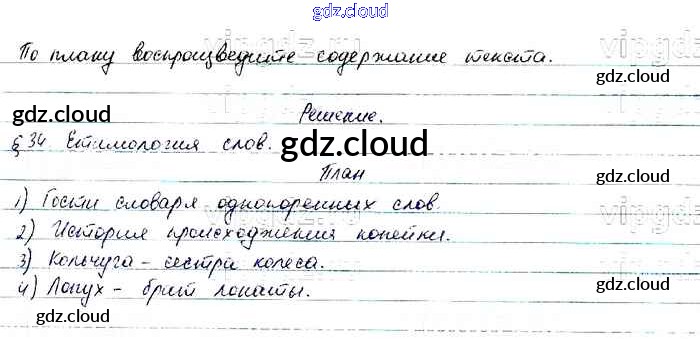 gdz.cloud
По плану воспроизведите содержание текста.
vipgdz
gdz.cloud
gdz.cloud
Решение.
gdz.cloud
§ 34 Етимология слов.
План
gdz.cloud
1) Гости словаря однокоренных слов.
vipgdz
2) История происхождения копейки.
3) Кольчуга - сестра колеса.
4) Лопух - брат лопаты.
gdz.cloud
gdz.cloud